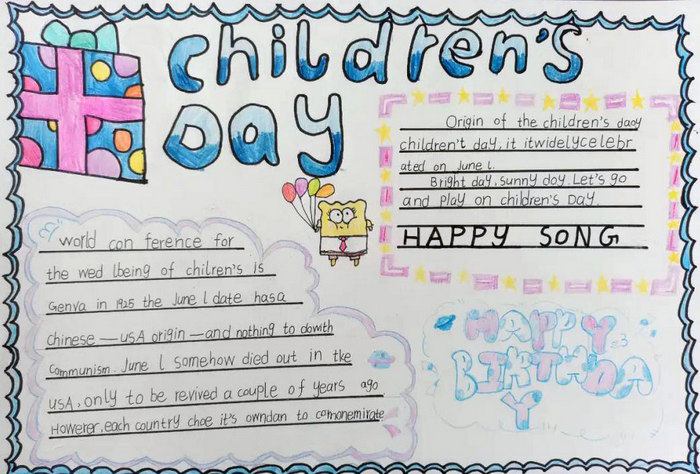 children's
Day
Origin of the children's daoy
children't day, it itwidelycelebr
ated on June 1.
Bright day, sunny doy. Let's go
and play on children's Day.
HAPPY SONG
World con ference for
the wed lbeing of chilren's is
Genva in 1925 the June 1 date hasa
chinese—USA origin—and nothing to dowith
Communism. June 1 somehow died out in tke
USA, only to be revived a couple of years ago
However, each country choe it's owndan to comonemirate
HAPPY
BIRTHDA
Y